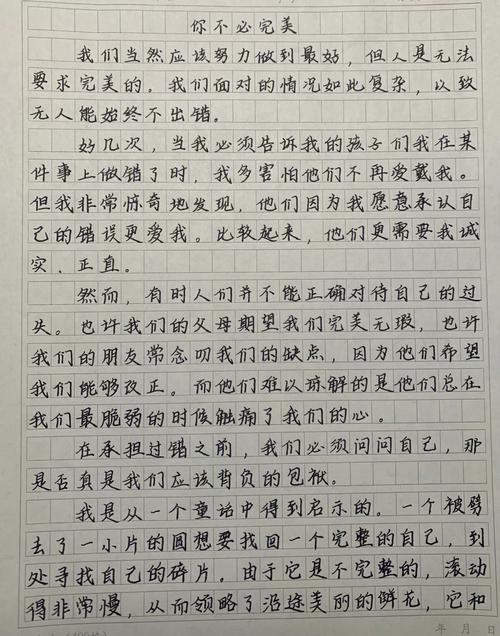 你不必完美
我们当然应该努力做到最好，但人是无法
要求完美的。我们面对的情况如此复杂，以致
无人能始终不出错。
好几次，当我必须告诉我的孩子们我在某
件事上做错了时，我多害怕他们不再爱戴我。
但我非常惊奇地发现，他们因为我愿意承认自
己的错误更爱我。比较起来，他们更需要我诚
实、正直。
然而，有时人们并不能正确对待自己的过
失。也许我们的父母期望我们完美无瑕，也许
我们的朋友常念叨我们的缺点，因为他们希望
我们能够改正。而他们难以谅解的是他们总在
我们最脆弱的时候触痛了我们的心。
在承担过错之前，我们必须问问自己，那
是否真是我们应该背负的包袱。
我是从一个童话中得到启示的。一个被劈
去了一小片的圆想要找回一个完整的自己，到
处寻找自己的碎片。由于它是不完整的，滚动
得非常慢，从而领略了沿途美丽的鲜花，它和
年 月 日